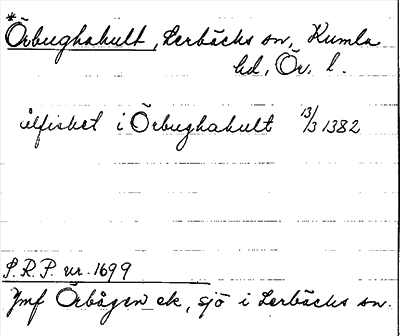 *Örbughakult, Lerbäcks sn, Kumla
hd, Ör. l.
ilfisket i Örbughakult 13/3 1382
S.R.P. nr. 1699
Jmf Örbågen ek, sjö i Lerbäcks sn.